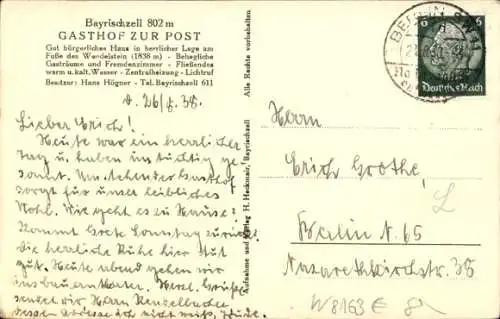 Bayrischzell 802 m
GASTHOF ZUR POST
Gut bürgerliches Haus in herrlicher Lage am
Fuße des Wendelstein (1838 m) - Behagliche
Gasträume und Fremdenzimmer - Fließendes
warm u. kalt. Wasser - Zentralheizung - Lichtruf
Besitzer: Hans Högner - Tel. Bayrischzell 611
d. 26/8. 38.
Lieber Erich!
Heute war ein herrlicher
Tag u. haben uns tüchtig ge-
sonnt. Umstehender Gasthof
sorgt für unser leibliches
Wohl. Wie geht es zu Hause?
Kommt Grete Sonntag zurück?
die herrliche Ruhe hier tut
gut. Heute abend gehen wir
ins Herzl. Grüße
sendet wir Herrn
dessen Adresse ich nicht weiß,
Alle Rechte vorbehalten
Aufnahme und Verlag H. Heckmair, Bayrischzell
BERLIN
6 6
Deutsches Reich
Herrn
Erich Grothe,
Berlin N. 65
Nazarethkirchstr. 38
L
W8163 E